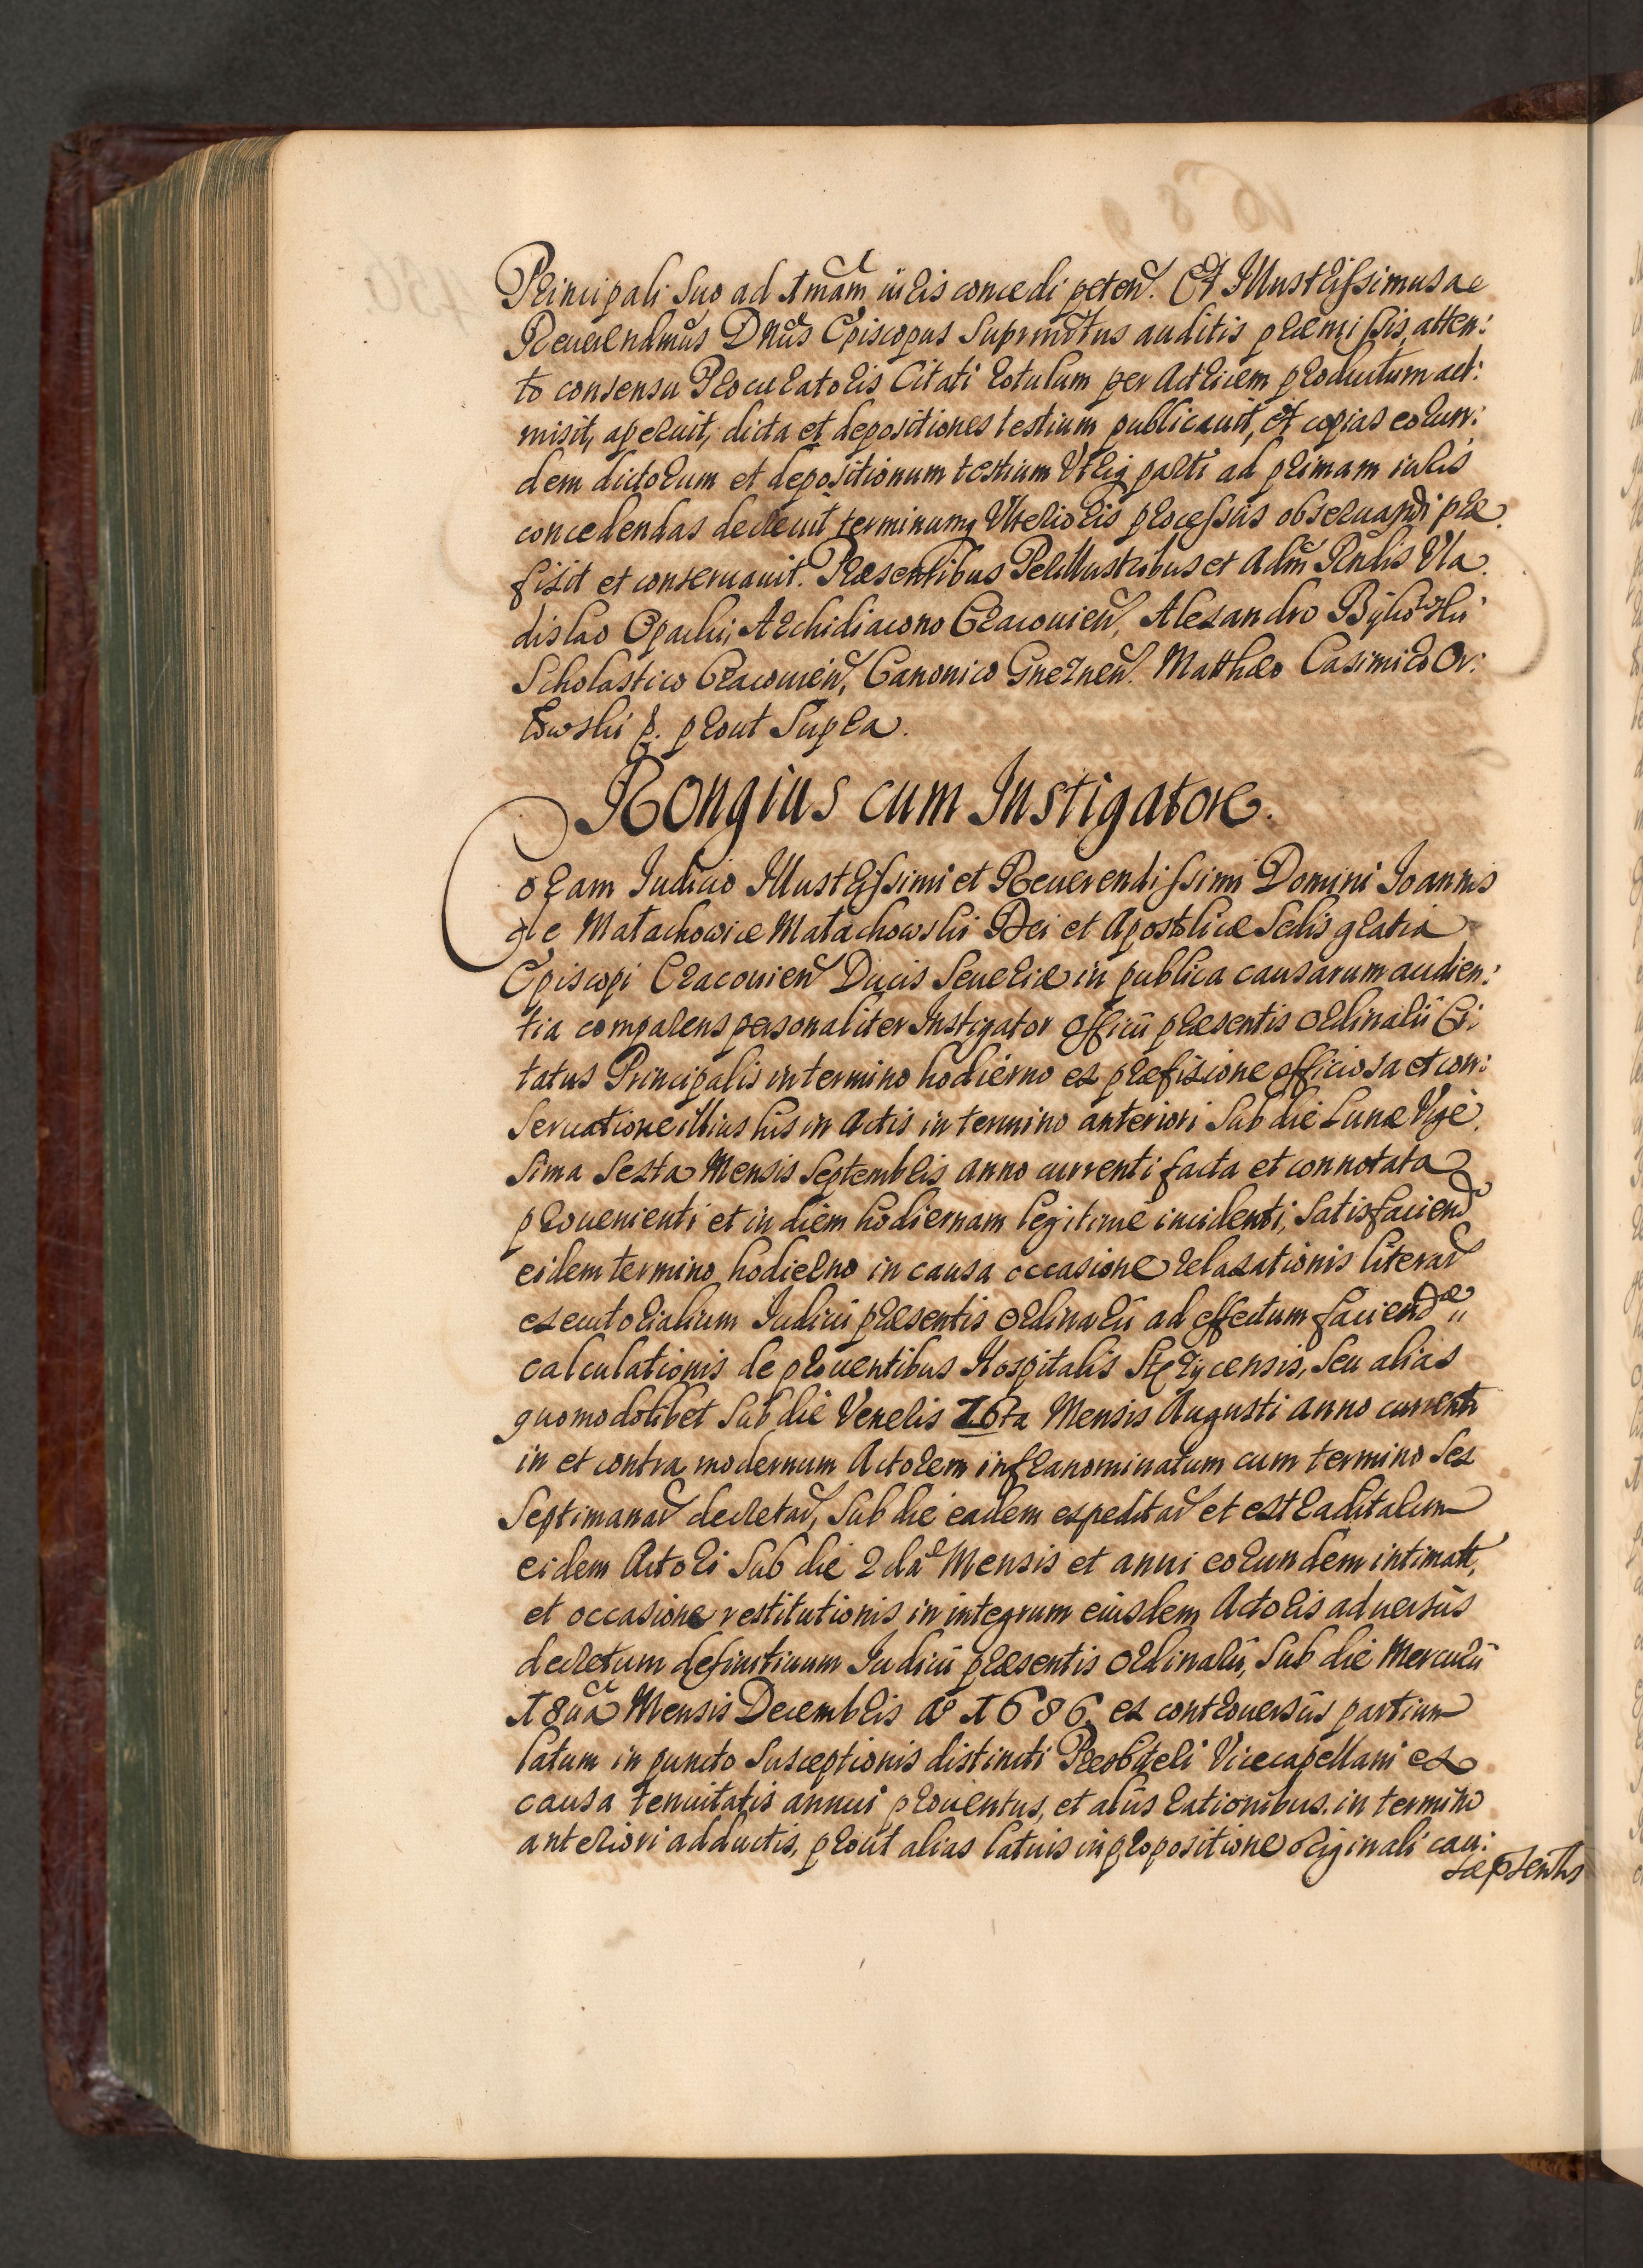 Principali Suo ad 1mam iuris concedi peten. Et Illustrissimus ac
Reuerendmus Dnus Episcopus Suprmotus auditis praemissis, atten:
to consensu Procuratoris Citati rotulum per Actricem productum ad:
misit, aperuit, dicta et depositiones testium publicauit, et copias eorun:
dem dictorum et depositionum testium Vtriq parti ad primam iuris
concedendas decreuit terminumq Vlterioris processus obseruandi prae
fixit et conseruauit. Praesentibus Perillustribus et Adm Rndis Vla
dislao Opacki, Archidiacono Cracouien, Alexandro
Scholastico Cracouien, Canonico Gneznen. Matthaeo Casimiro Or:
łowski p. prout Supra.
Rongius cum Instigatore.
Coram Iudicio Illustrissimi et Reuerendissimi Domini Ioannis
de Małachowice Małachowski Dei et Apostolicae Sedis gratia
Episcopi Cracouien Ducis Seueriae in publica causarum audien:
tia comparens personaliter Instigator officii praesentis Ordinarii Ci:
tatus Principalis in termino hodierno ex praefixione officiosa et con:
Seruatione illius his in Actis in termino anteriori Sub die Lunae Vige
Sima Sexta Mensis Septembris anno currenti facta et connotata
prouenienti et in diem hodiernam legitime incidenti, Satisfaciend
eidem termino hodierno in causa occasione relaxationis literar
executorialium Iudicii praesentis Ordinarii ad effectum faciendae
calculationis de prouentibus Hospitalis Strzycensis, Seu alias
quomodolibet Sub die Veneris 16ta Mensis Augusti anno currenti
in et contra modernum Actorem infranominatum cum termino Sex
Septimanar decretar, Sub die eadem expeditar et extraditarum
eidem Actori Sub die 2da Mensis et anni eorundem intimatt,
et occasione restitutionis in integrum eiusdem Actoris aduersus
decretum definitiuum Iudicii praesentis Ordinarii, Sub die Mercurii
18ua Mensis Decembris Ao 1686. ex controuersiis partium
latum in puncto Susceptionis distincti Praesbyteri Vicecapellani ex
causa tenuitatis annui prouentus, et aliis rationibus in termino
anteriori adductis, prout alias latius in propositione originali cau: